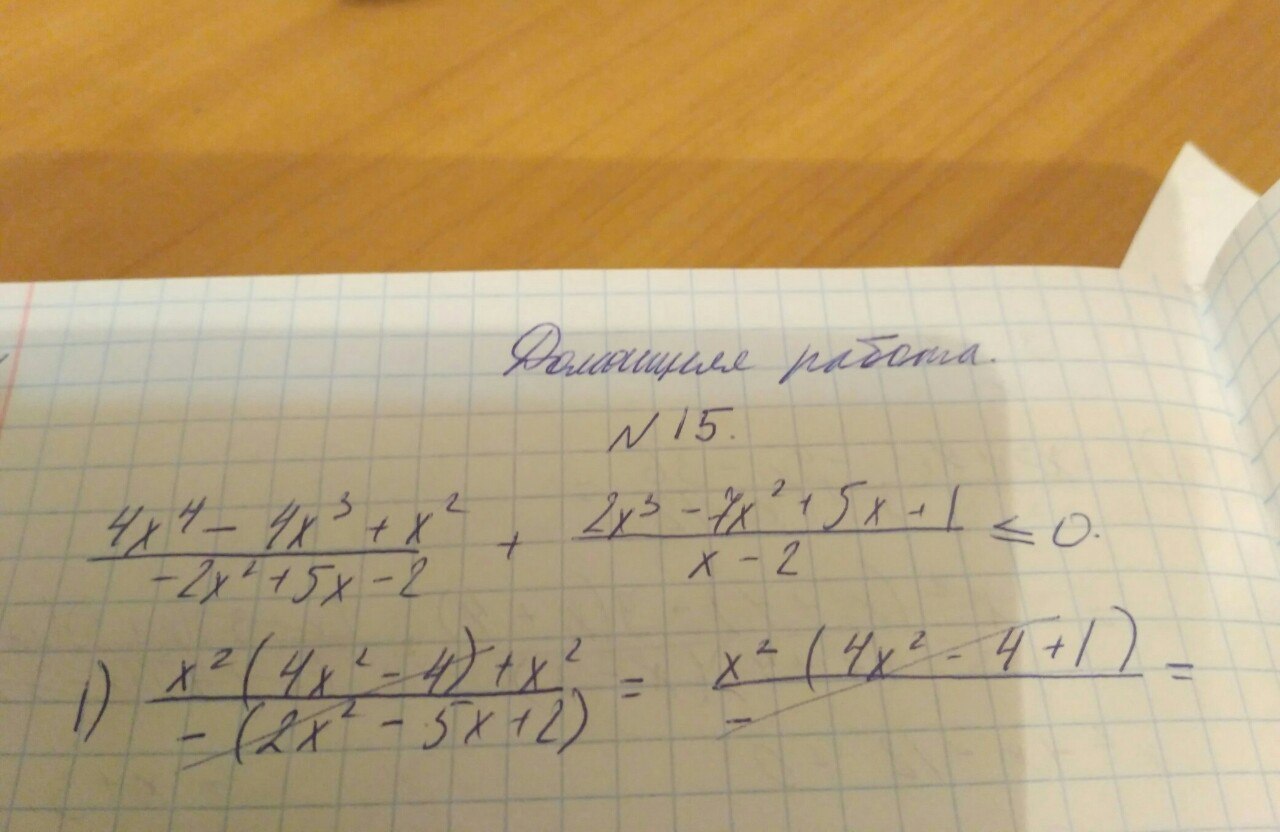 Домашняя работа.
№ 15.
4x⁴ - 4x³ + x² / -2x² + 5x - 2 + 2x³ - 7x² + 5x + 1 / x - 2 ≤ 0.
1) x² (4x² - 4) + x² / - (2x² - 5x + 2) = x² (4x² - 4 + 1) / - =